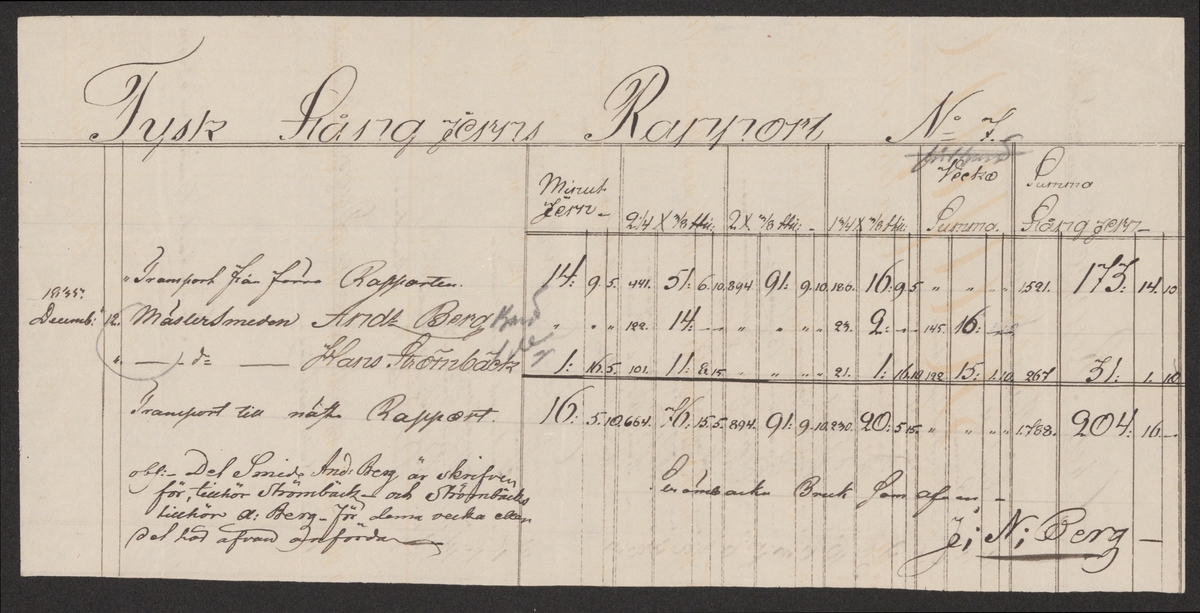 Tysk Stång Jerns Rapport No 7.
Minut Jern - 2 1/4 X 5/8 2 X 5/8 1 3/4 X 5/8 Vecko Summa. Summa Stång Jern -
" Transport från förra Rapporten. 14: 9. 5. 441. 51: 6. 10. 894. 91: 9. 10. 186. 16. 9. 5 " " " " 1521. 173: 14. 10
1855.
Decemb: 12. MästerSmeden Andr Berg " " " 122. 14: - - " " " " 23. 2: - - 145. 16: - -
" - d: - Hans Strömbäck 1: 16. 5. 101. 11: 8. 15. " " " " 21. 1: 16. 10. 122 15: 1. 10. 267 31: 1. 10
Transport till näste Rapport. 16: 5. 10. 664. 76. 15. 5. 894. 91: 9. 10. 230. 20: 5. 15. " " " " 1788. 204: 16 -
obs:- Det Smide And: Berg är skrifven
för, tillhör Strömbäck - och Strömbäcks
tillhör d: Berg - för denna vecka
Det
Strömbacka Bruk
J; N; Berg -